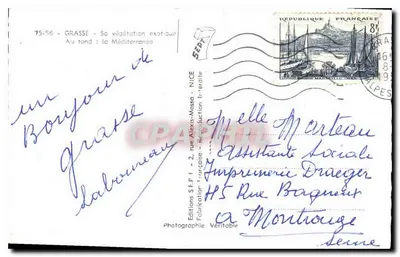 75-56 - GRASSE - Sa végétation exotique
Au fond : la Méditerranée
un
Bonjour de
grasse
Laboureau
Editions S.E.F.I. - 2, rue Alexis-Mossa - NICE
Fabrication Française - Reproduction Interdite
Photographie Véritable
SEPT
REPUBLIQUE FRANÇAISE
8f
GRASSE
ALPES
Melle Marteau
Assistante Sociale
Imprimerie Draeger
115 Rue Bagneux
a Montrouge
Seine
Cartepostale